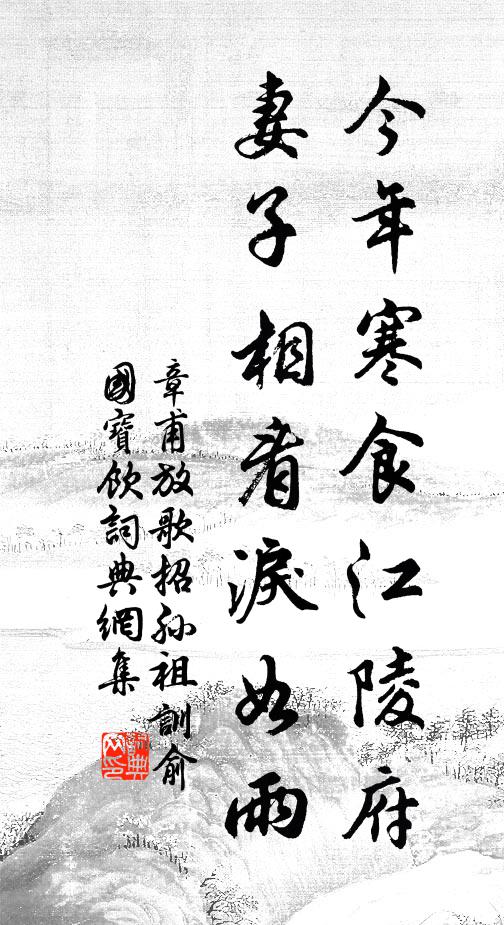 今年寒食江陵府
妻子相看淚如雨
章甫放歌招孫祖訓俞
國寶飲詞典網集